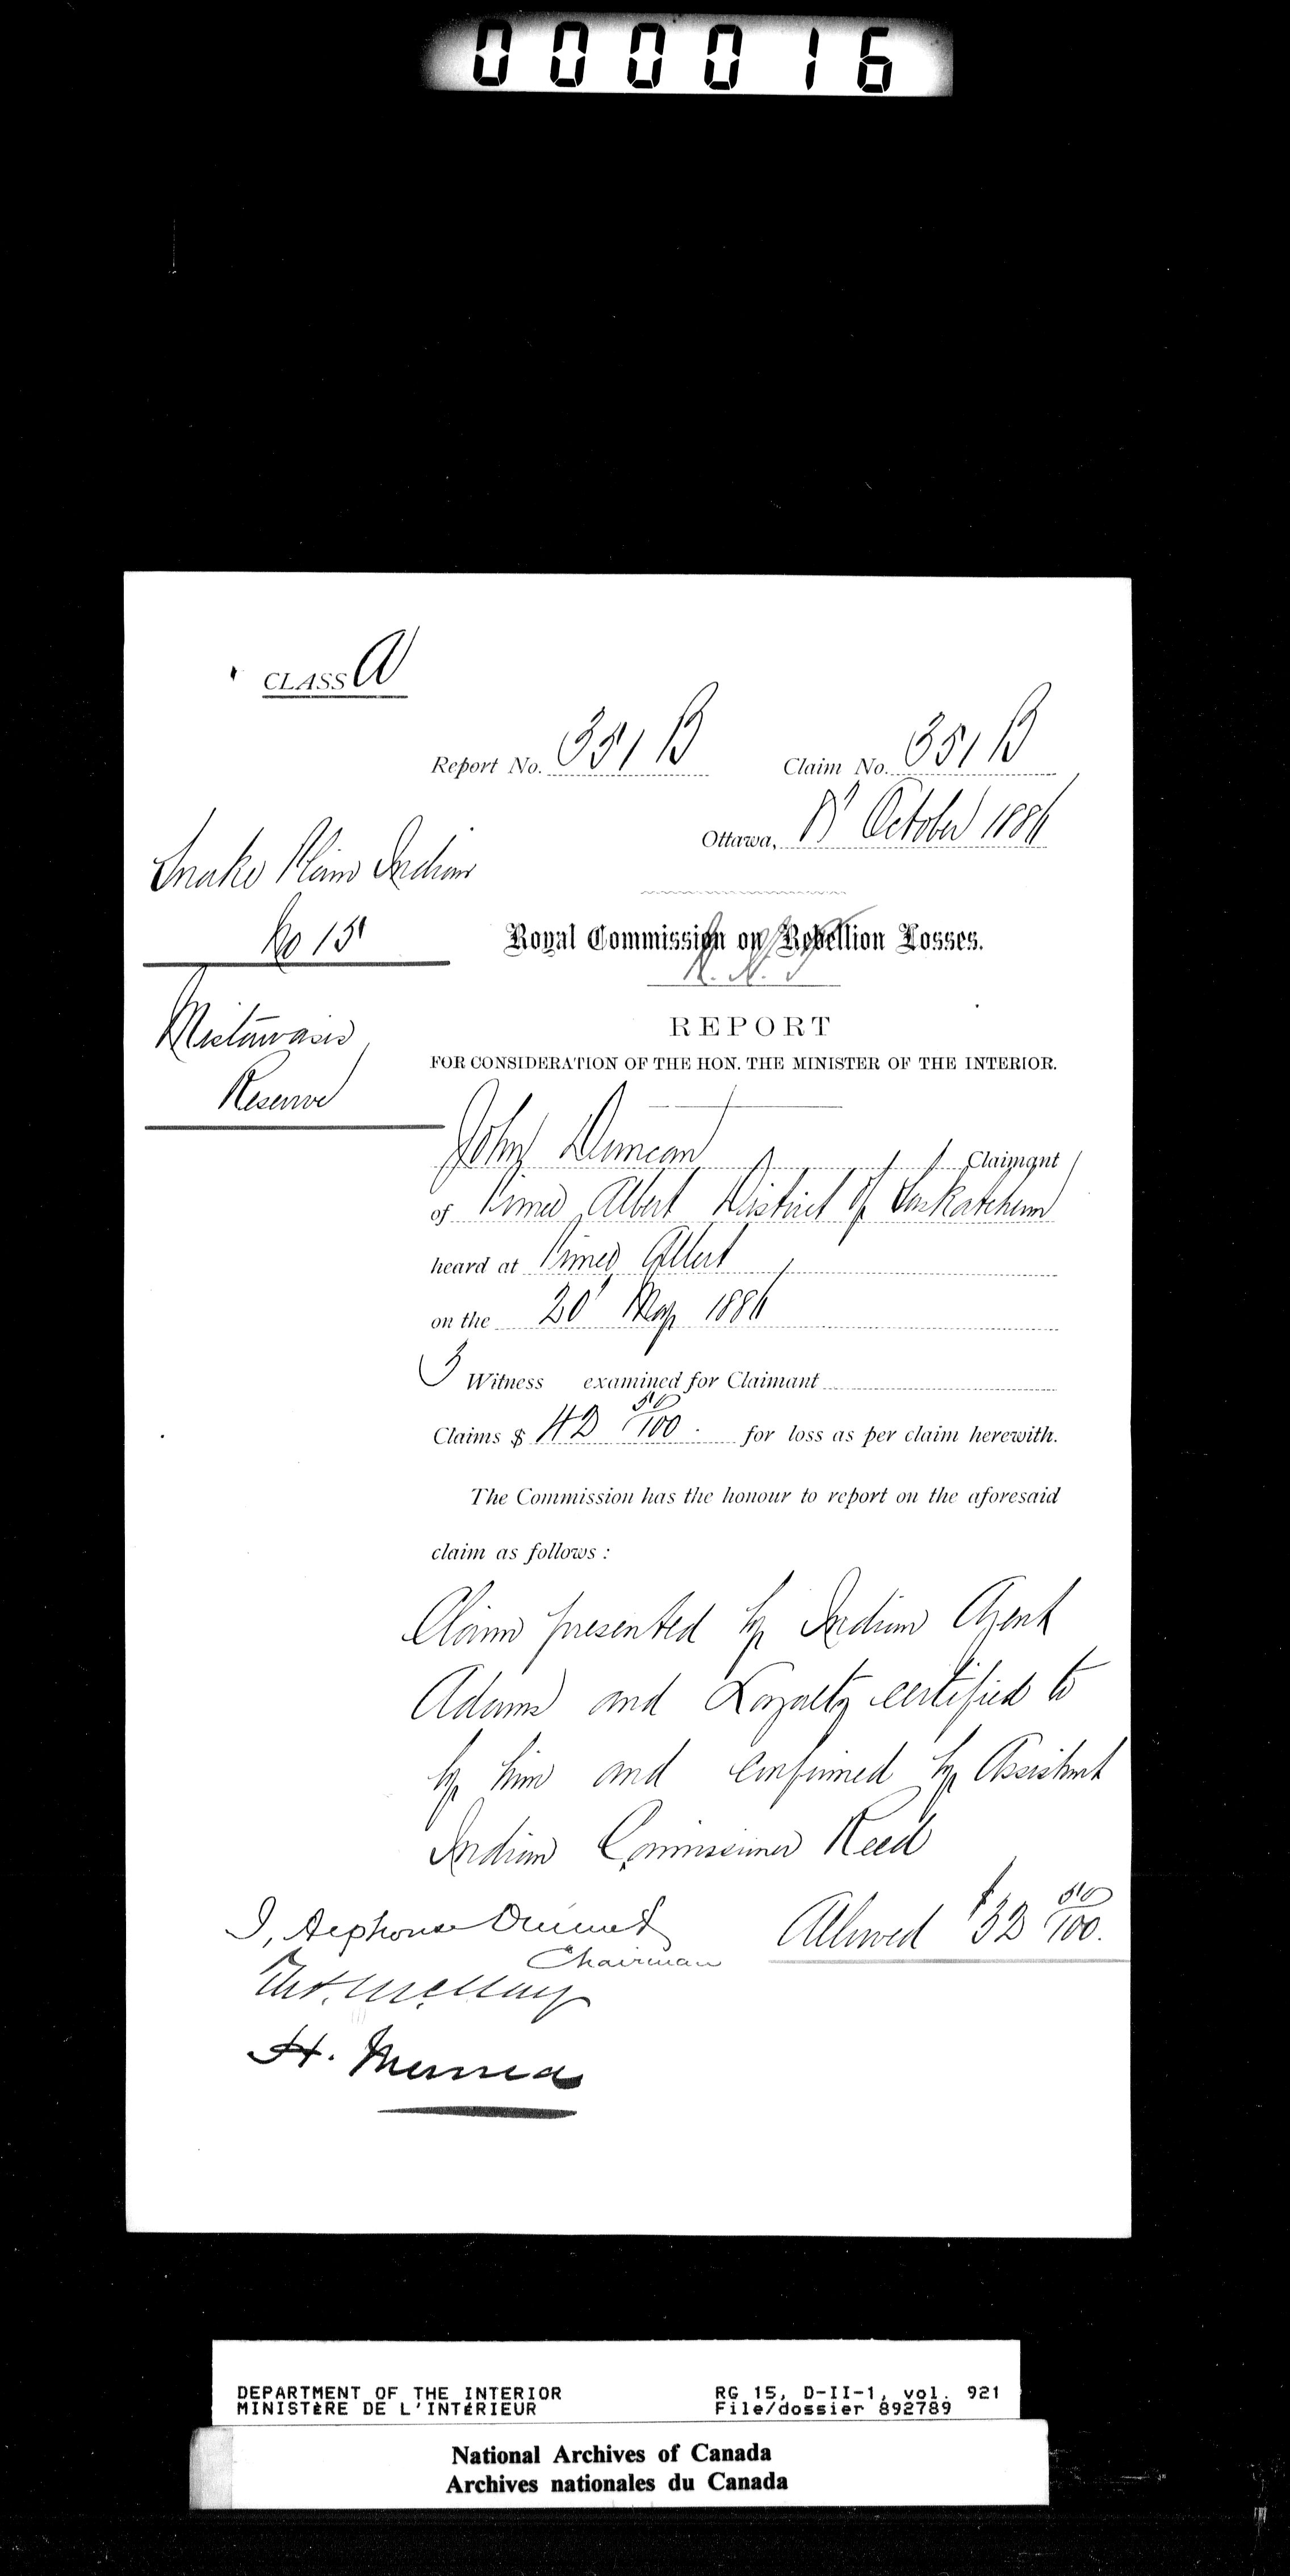 000016
CLASS A
Report No. 351 B Claim No. 351 B
Ottawa, October 1886
Snake Plain Indian
No 15
Royal Commission on Rebellion Losses.
Mistawasis
Reserve
REPORT
FOR CONSIDERATION OF THE HON. THE MINISTER OF THE INTERIOR.
John Duncan Claimant
of Prince Albert District of Saskatchewan
heard at Prince Albert
on the 20' May 1886
3 Witness examined for Claimant
Claims $ 42 50/100. for loss as per claim herewith.
The Commission has the honour to report on the aforesaid
claim as follows :
Claim presented by Indian Agent
Adams and Loyalty certified to
by him and confirmed by Assistant
Indian Commissioner Reed
Allowed $32 50/100.
J, Alphonse Ouimet
Chairman
H. Muma
DEPARTMENT OF THE INTERIOR RG 15, D-II-1, vol. 921
MINISTÈRE DE L'INTÉRIEUR File/dossier 892789
National Archives of Canada
Archives nationales du Canada